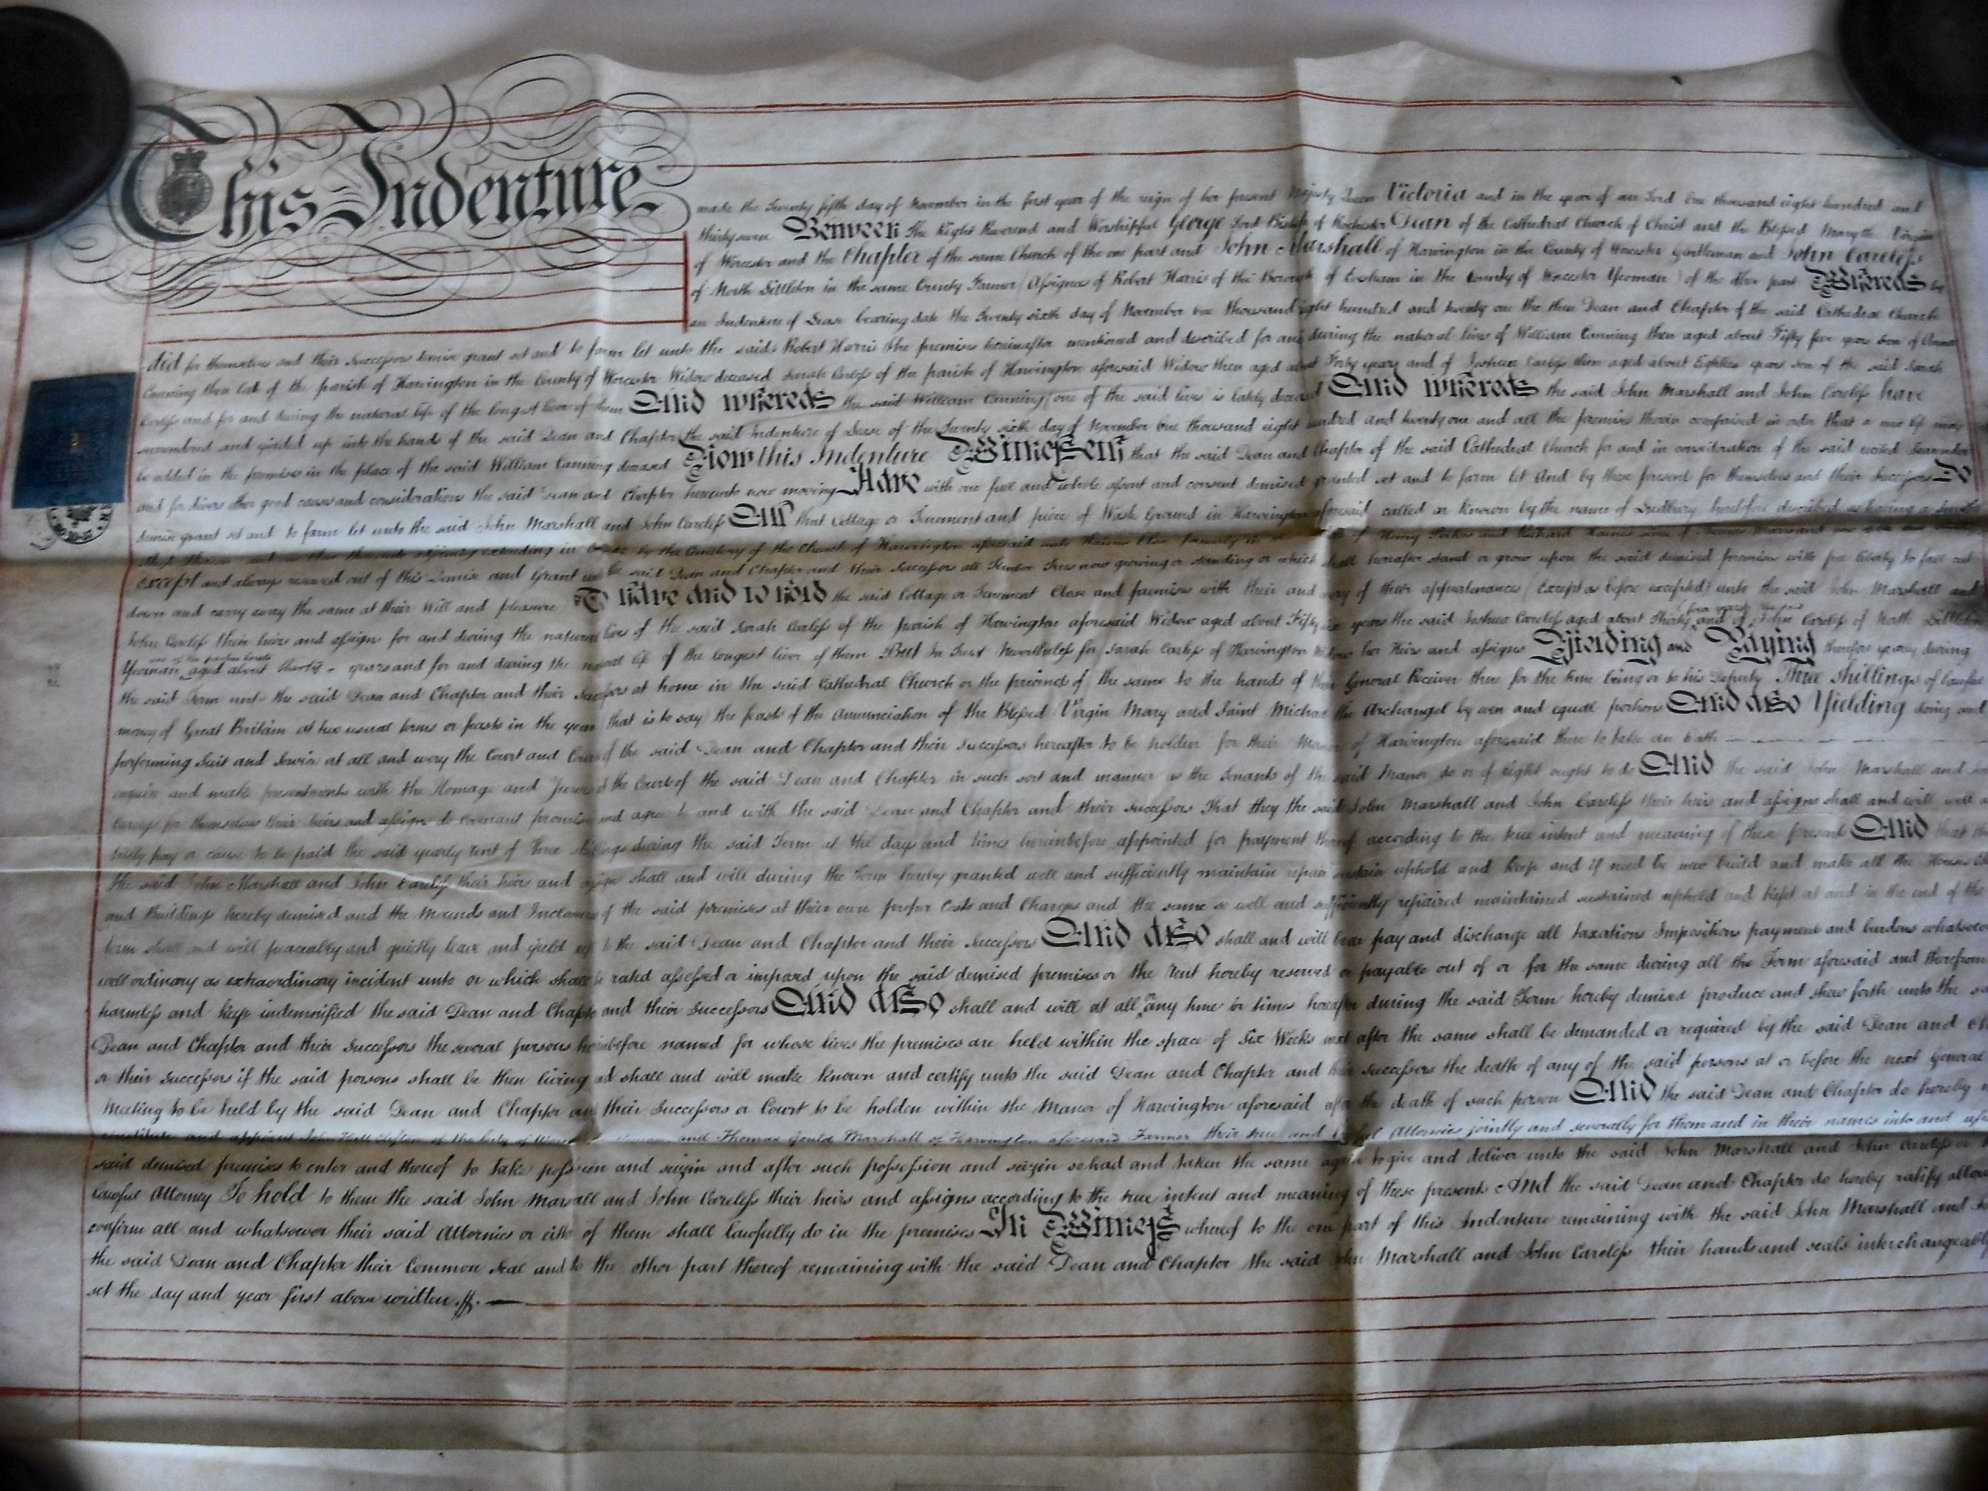 This Indenture
made the Twenty fifth day of November in the first year of the reign of her present Majesty Queen Victoria and in the year of our Lord One thousand eight hundred and
thirty seven Between The Right Reverend and Worshipful George Lord Bishop of Rochester Dean of the Cathedral Church of Christ and the Blessed Mary the Virgin
of Worcester and the Chapter of the same Church of the one part and John Marshall of Harvington in the County of Worcester Gentleman and John Careless
of North Littleton in the same County Farmer (Assignees of Robert Harris of the Borough of Evesham in the County of Worcester Yeoman) of the other part Whereas by
an Indenture of Lease bearing date the Twenty sixth day of November One thousand eight hundred and twenty one the then Dean and Chapter of the said Cathedral Church
did for themselves and their Successors demise grant set and to farm let unto the said Robert Harris the premises hereinafter mentioned and described for and during the natural lives of William Canning then aged about Fifty five years Son of
Canning then late of the parish of Harvington in the County of Worcester Widow deceased Sarah Careless of the parish of Harvington aforesaid Widow then aged about Forty years and of Joshua Careless then aged about Eighteen years son of the said Sarah
Careless and for and during the natural life of the longest liver of them And whereas the said William Canning (one of the said lives is lately deceased And whereas the said John Marshall and John Careless have
surrendered and yielded up into the hands of the said Dean and Chapter the said Indenture of Lease of the Twenty sixth day of November One thousand eight hundred and twenty one and all the premises therein comprised in order that a new life may
be added in the premises in the place of the said William Canning deceased Now this Indenture Witnesseth that the said Dean and Chapter of the said Cathedral Church for and in consideration of the said recited Surrender
and for divers other good causes and considerations the said Dean and Chapter hereunto now moving Have with one full and whole assent and consent demised granted set and to farm let And by these presents for themselves and their Successors Do
demise grant set and to farm let unto the said John Marshall and John Careless All that Cottage or Tenement and piece of Waste Ground in Harvington aforesaid called or known by the name of Dudbury heretofore described as having a Smith's
Shop thereon and extending in by the Cemetery of the Church of Harvington aforesaid unto Close formerly in the of Henry Perkes and Richard
Except and always reserved out of this Demise and Grant unto the said Dean and Chapter and their Successors all Timber Trees now growing or standing or which shall hereafter stand or grow upon the said demised premises with free liberty to fell cut
down and carry away the same at their Will and pleasure) To have and to hold the said Cottage or Tenement Close and premises with their and every of their appurtenances (Except as before excepted) unto the said John Marshall and
John Careless their heirs and assigns for and during the natural lives of the said Sarah Careless of the parish of Harvington aforesaid Widow aged about Fifty six years the said Joshua Careless aged about thirty four years and of the said John Careless of North Littleton
Yeoman one of the parties hereto aged about thirty - years and for and during the natural life of the longest liver of them But In Trust Nevertheless for Sarah Careless of Harvington Widow her Heirs and assigns Yielding and Paying therefore yearly during
the said Term unto the said Dean and Chapter and their Successors at home in the said Cathedral Church or the precinct of the same to the hands of their General Receiver there for the time being or to his Deputy Three shillings of lawful
money of Great Britain at two usual terms or feasts in the year (that is to say) the feast of the Annunciation of the Blessed Virgin Mary and Saint Michael the Archangel by even and equal portions And also Yielding doing and
performing Suit and Service at all and every the Court and Courts of the said Dean and Chapter and their Successors hereafter to be holden for their Manor of Harvington aforesaid there to take an Oath
enquire and make presentments with the Homage and Jurors at the Courts of the said Dean and Chapter in such sort and manner as the Tenants of the said Manor do or of right ought to do And the said John Marshall and John
Careless for themselves their heirs and assigns do Covenant promise and agree to and with the said Dean and Chapter and their Successors That they the said John Marshall and John Careless their heirs and assigns shall and will well and
truly pay or cause to be paid the said yearly rent of Three shillings during the said Term at the days and times hereinbefore appointed for payment thereof according to the true intent and meaning of these presents And that they
the said John Marshall and John Careless their heirs and assigns shall and will during the Term hereby granted well and sufficiently maintain repair sustain uphold and keep and if need be new build and make all the Houses
and Buildings hereby demised and the Mounds and Inclosures of the said premises at their own proper Costs and Charges and the same so well and sufficiently repaired maintained sustained upheld and kept at and in the end of the
term shall and will peaceably and quietly leave and yield up to the said Dean and Chapter and their Successors And also shall and will bear pay and discharge all taxations Impositions payments and burdens whatsoever
well ordinary as extraordinary incident unto or which shall be rated assessed or imposed upon the said demised premises or the rent hereby reserved or payable out of or for the same during all the Term aforesaid and therefrom
harmless and keep indemnified the said Dean and Chapter and their Successors And also shall and will at all or any time or times hereafter during the said Term hereby demised produce and shew forth unto the said
Dean and Chapter and their Successors the several persons hereinbefore named for whose lives the premises are held within the space of Six Weeks next after the same shall be demanded or required by the said Dean and
or their Successors if the said persons shall be then living and shall and will make known and certify unto the said Dean and Chapter and their Successors the death of any of the said persons at or before the next General
Meeting to be held by the said Dean and Chapter and their Successors or Court to be holden within the Manor of Harvington aforesaid after the death of such person And the said Dean and Chapter do hereby
constitute and appoint John Hall Clifton of the City of and Thomas Gould Marshall of Harvington aforesaid Farmer their true and lawful Attornies jointly and severally for them and in their names into and upon
said demised premises to enter and thereof to take possession and seizin and after such possession and seizin so had and taken the same again to give and deliver unto the said John Marshall and John Careless or
lawful Attorney To hold to them the said John Marshall and John Careless their heirs and assigns according to the true intent and meaning of these presents And the said Dean and Chapter do hereby ratify allow
confirm all and whatsoever their said Attornies or either of them shall lawfully do in the premises In Witness whereof to the one part of this Indenture remaining with the said John Marshall and John
the said Dean and Chapter their Common Seal and to the other part thereof remaining with the said Dean and Chapter the said John Marshall and John Careless their hands and seals interchangeably
set the day and year first above written